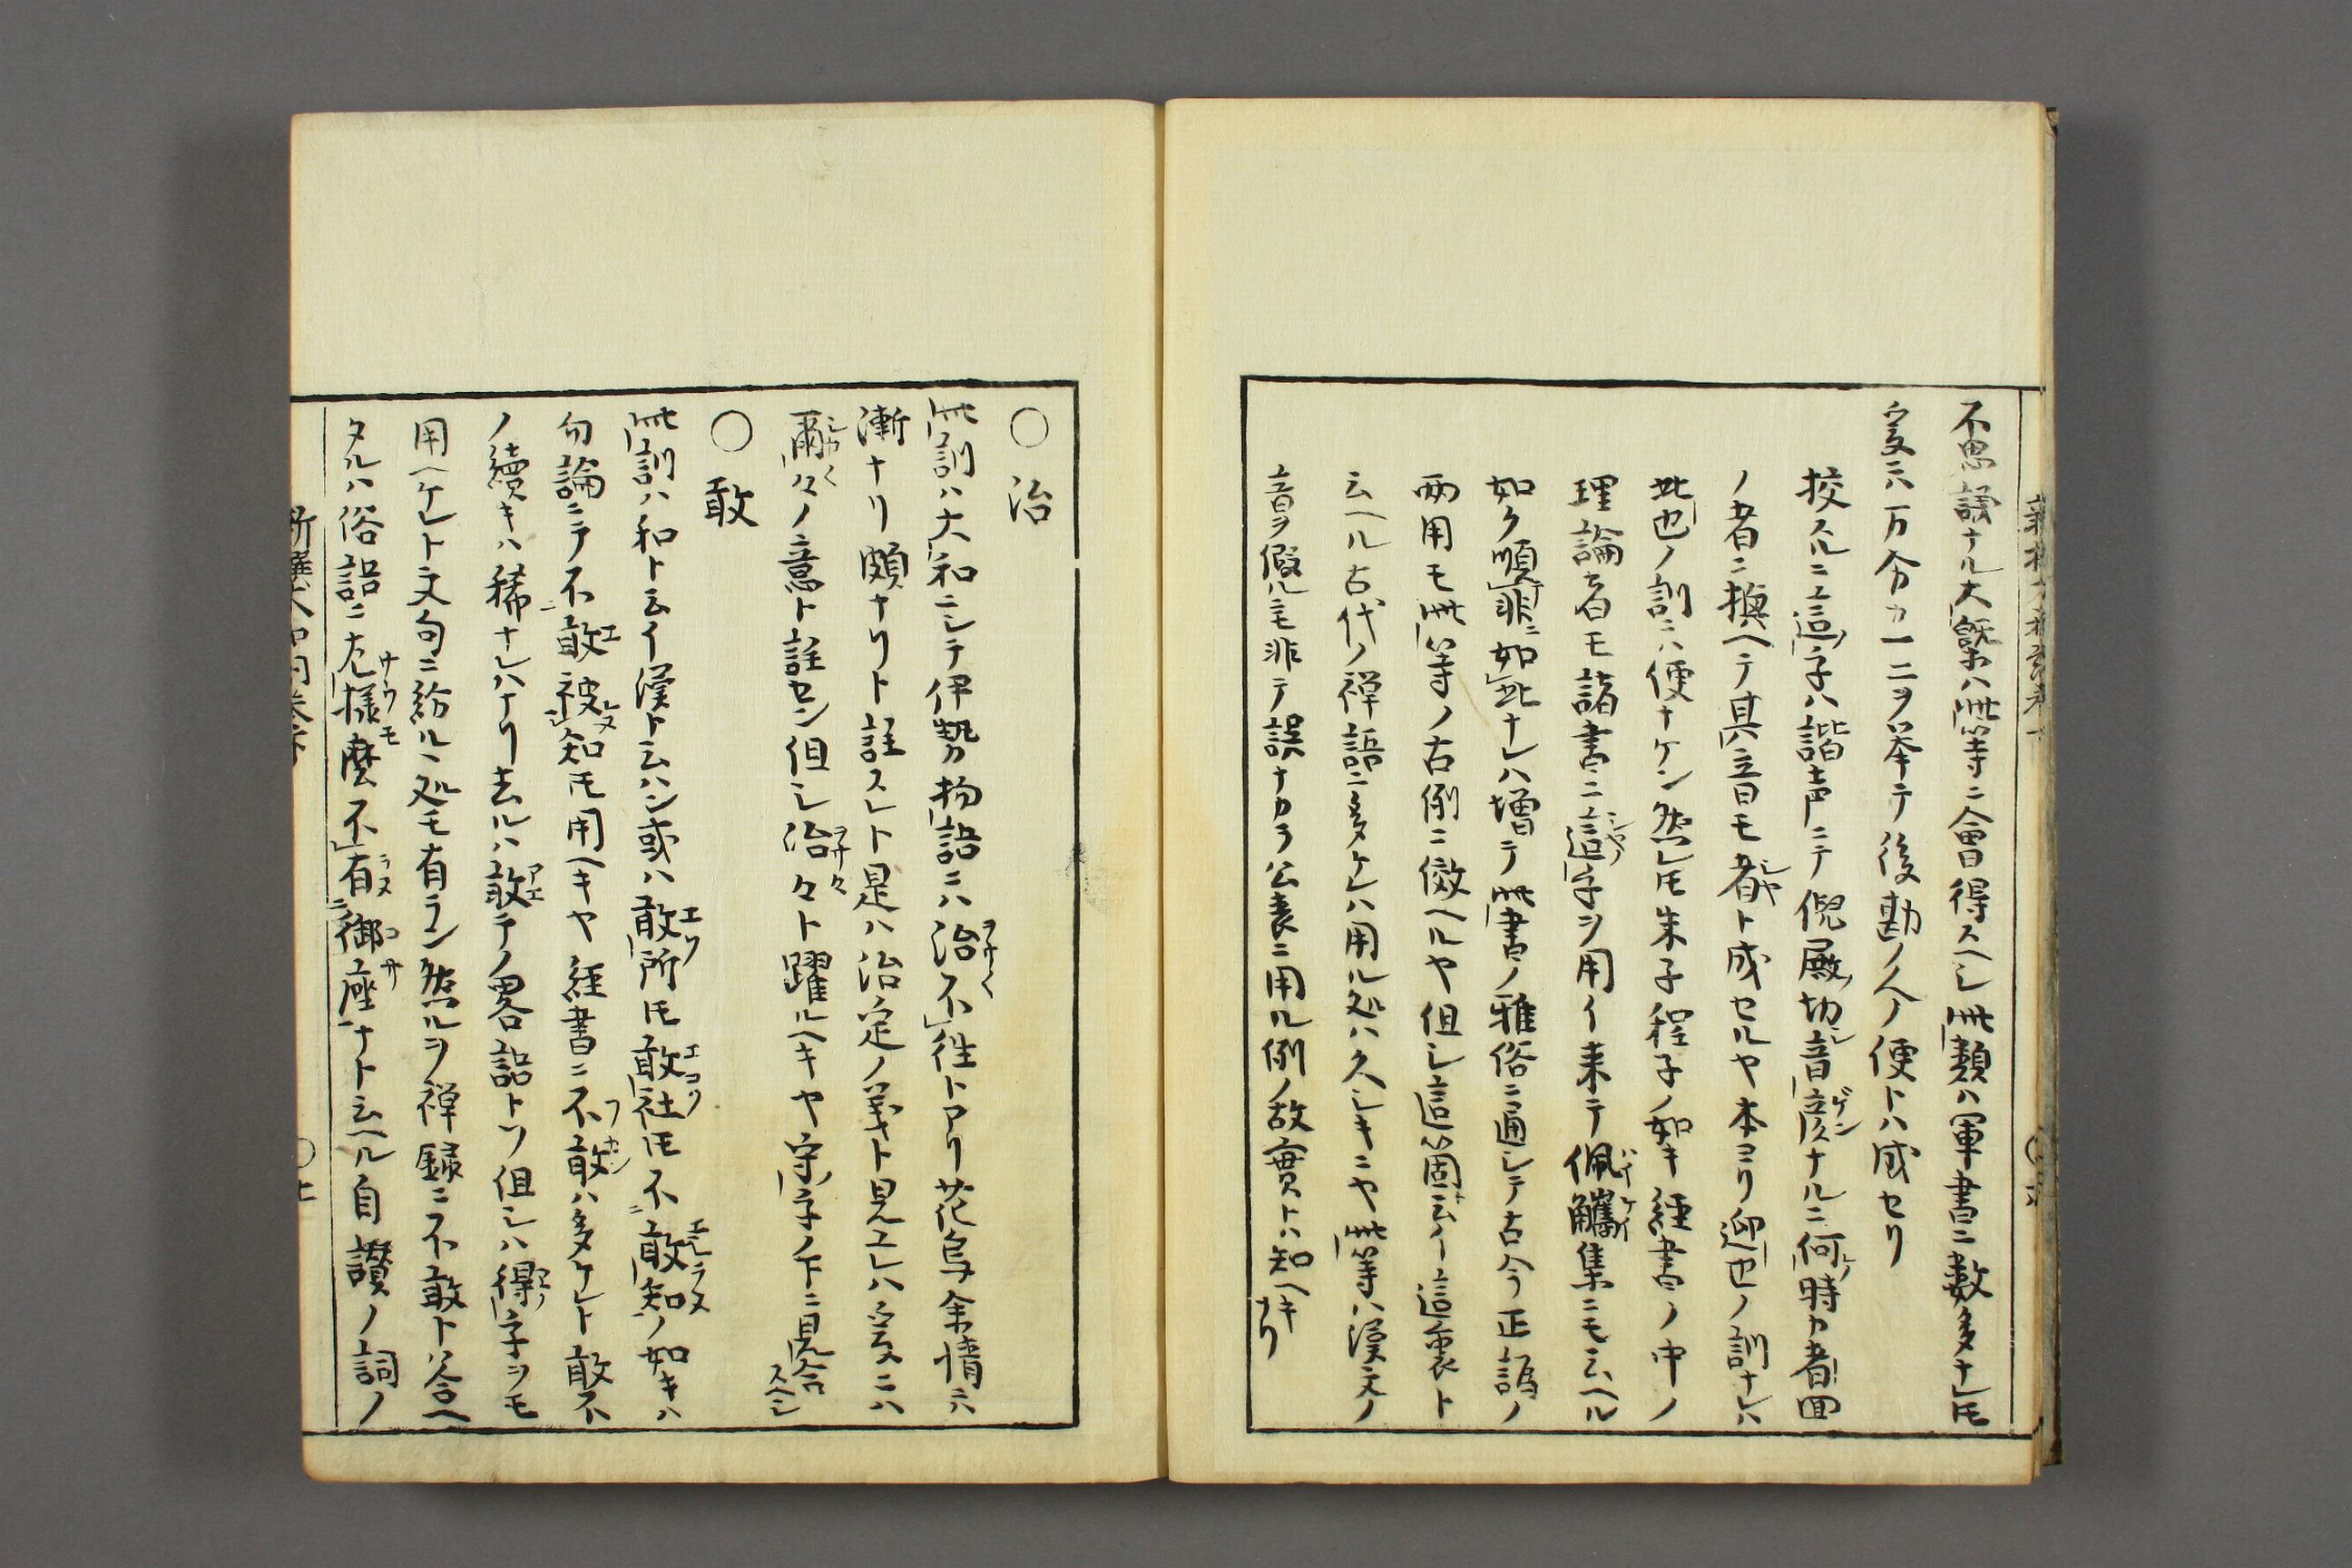 不思議ナル大槩ハ此等ニ會得スヘシ此類ハ軍書ニ數多ナレ𪜈
爰ニハ万分カ一二ヲ挙テ後勘ノ人ノ便トハ成セリ
按スルニ這ノ字ハ諧声ニテ倪殿ノ切シ音彦ゲンナルニ何ノ時カ者回
ノ者ニ換ヘテ其音モ者シヤト成セルヤ本ヨリ迎也ノ訓ナレハ
此也ノ訓ニハ便ナケン然レ𪜈朱子程子ノ如キ経書ノ中ノ
理論者モ諸書ニ這シヤノ字ヲ用イ来テ佩觿ハイケイ集ニモ云ヘル
如ク順非ニ如此ナレハ増テ此書ノ雅俗ニ通シテ古今正譌ノ
両用モ此等ノ古例ニ倣ヘルヤ但シ這箇ト云イ這裏ト
云ヘル古代ノ禅語ニ多ケレハ用ル処ハ久シキニヤ此等ハ漢文ノ
音ヲ假ルモ非テ誤ナカラ公表ニ用ル例ノ故實トハ知ヘキナリ
〇治
此訓ハ大和ニシテ伊勢物語ニハ治ヲサ〱不往トアリ花鳥余情ニハ
漸ナリ頗ナリト註スレト是ハ治定ノ義ト見エレハ爰ニハ
爾々シカ〱ノ意ト註セン但シ治々ヲサ々ト躍ルヘキヤ守ノ字ノ下ニ見合スヘシ
〇敢
此訓ハ和ト云イ漢ト云ハン或ハ敢所エソ𪜈敢社エコソ𪜈不敢知エシラヌノ如キハ
勿論ニテ不敢エ被知レヌ𪜈用ヘキヤ経書ニ不敢フカンハ多ケレト敢不
ノ續キハ稀ナレハナリ去ルハ敢アエテノ畧語トソ但シハ得エノ字ヲモ
用ヘケレト文句ニ紛ルヽ処モ有ラン然ルヲ禅録ニ不敢ト答ヘ
タルハ俗語ニ左樣サウモ麼不有ラヌ御座コサナト云ヘル自讃ノ詞ノ